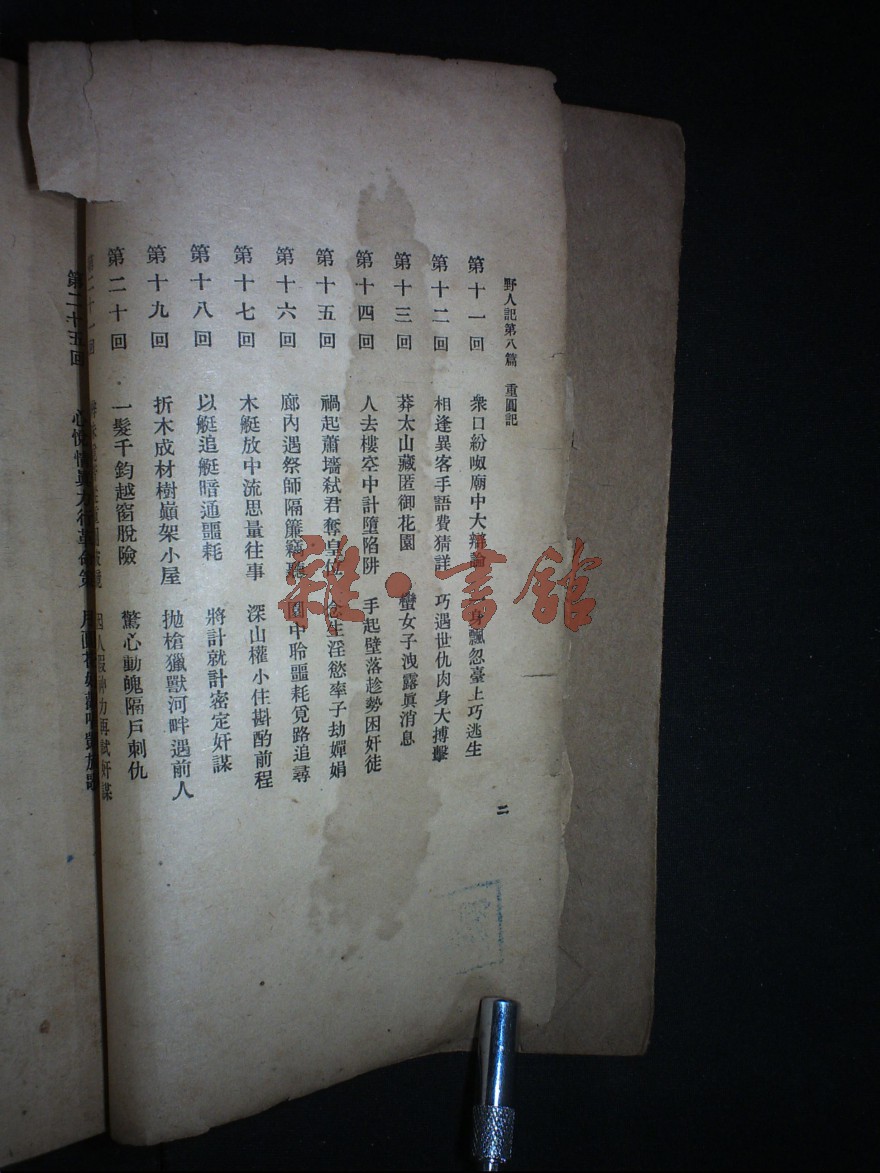 野人記第八篇 重圓記
第十一回 衆口紛呶廟中大辯論 一身飄忽臺上巧逃生
第十二回 相逢異客手語費猜詳 巧遇世仇肉身大搏擊
第十三回 莽太山藏匿御花園 蠻女子洩露眞消息
第十四回 人去樓空中計墮陷阱 手起壁落趁勢困奸徒
第十五回 禍起蕭墻弒君奪皇位 念生淫慾率子劫嬋娟
第十六回 廊內遇祭師隔簾竊聽 園中聆噩耗覓路追尋
第十七回 木艇放中流思量往事 深山權小住斟酌前程
第十八回 以艇追艇暗通噩耗 將計就計密定奸謀
第十九回 折木成材樹巔架小屋 拋槍獵獸河畔遇前人
第二十回 一髮千鈞越窗脫險 驚心動魄隔戶刺仇
第二十一回 再試奸謀
第二十五回
二
雜·書館